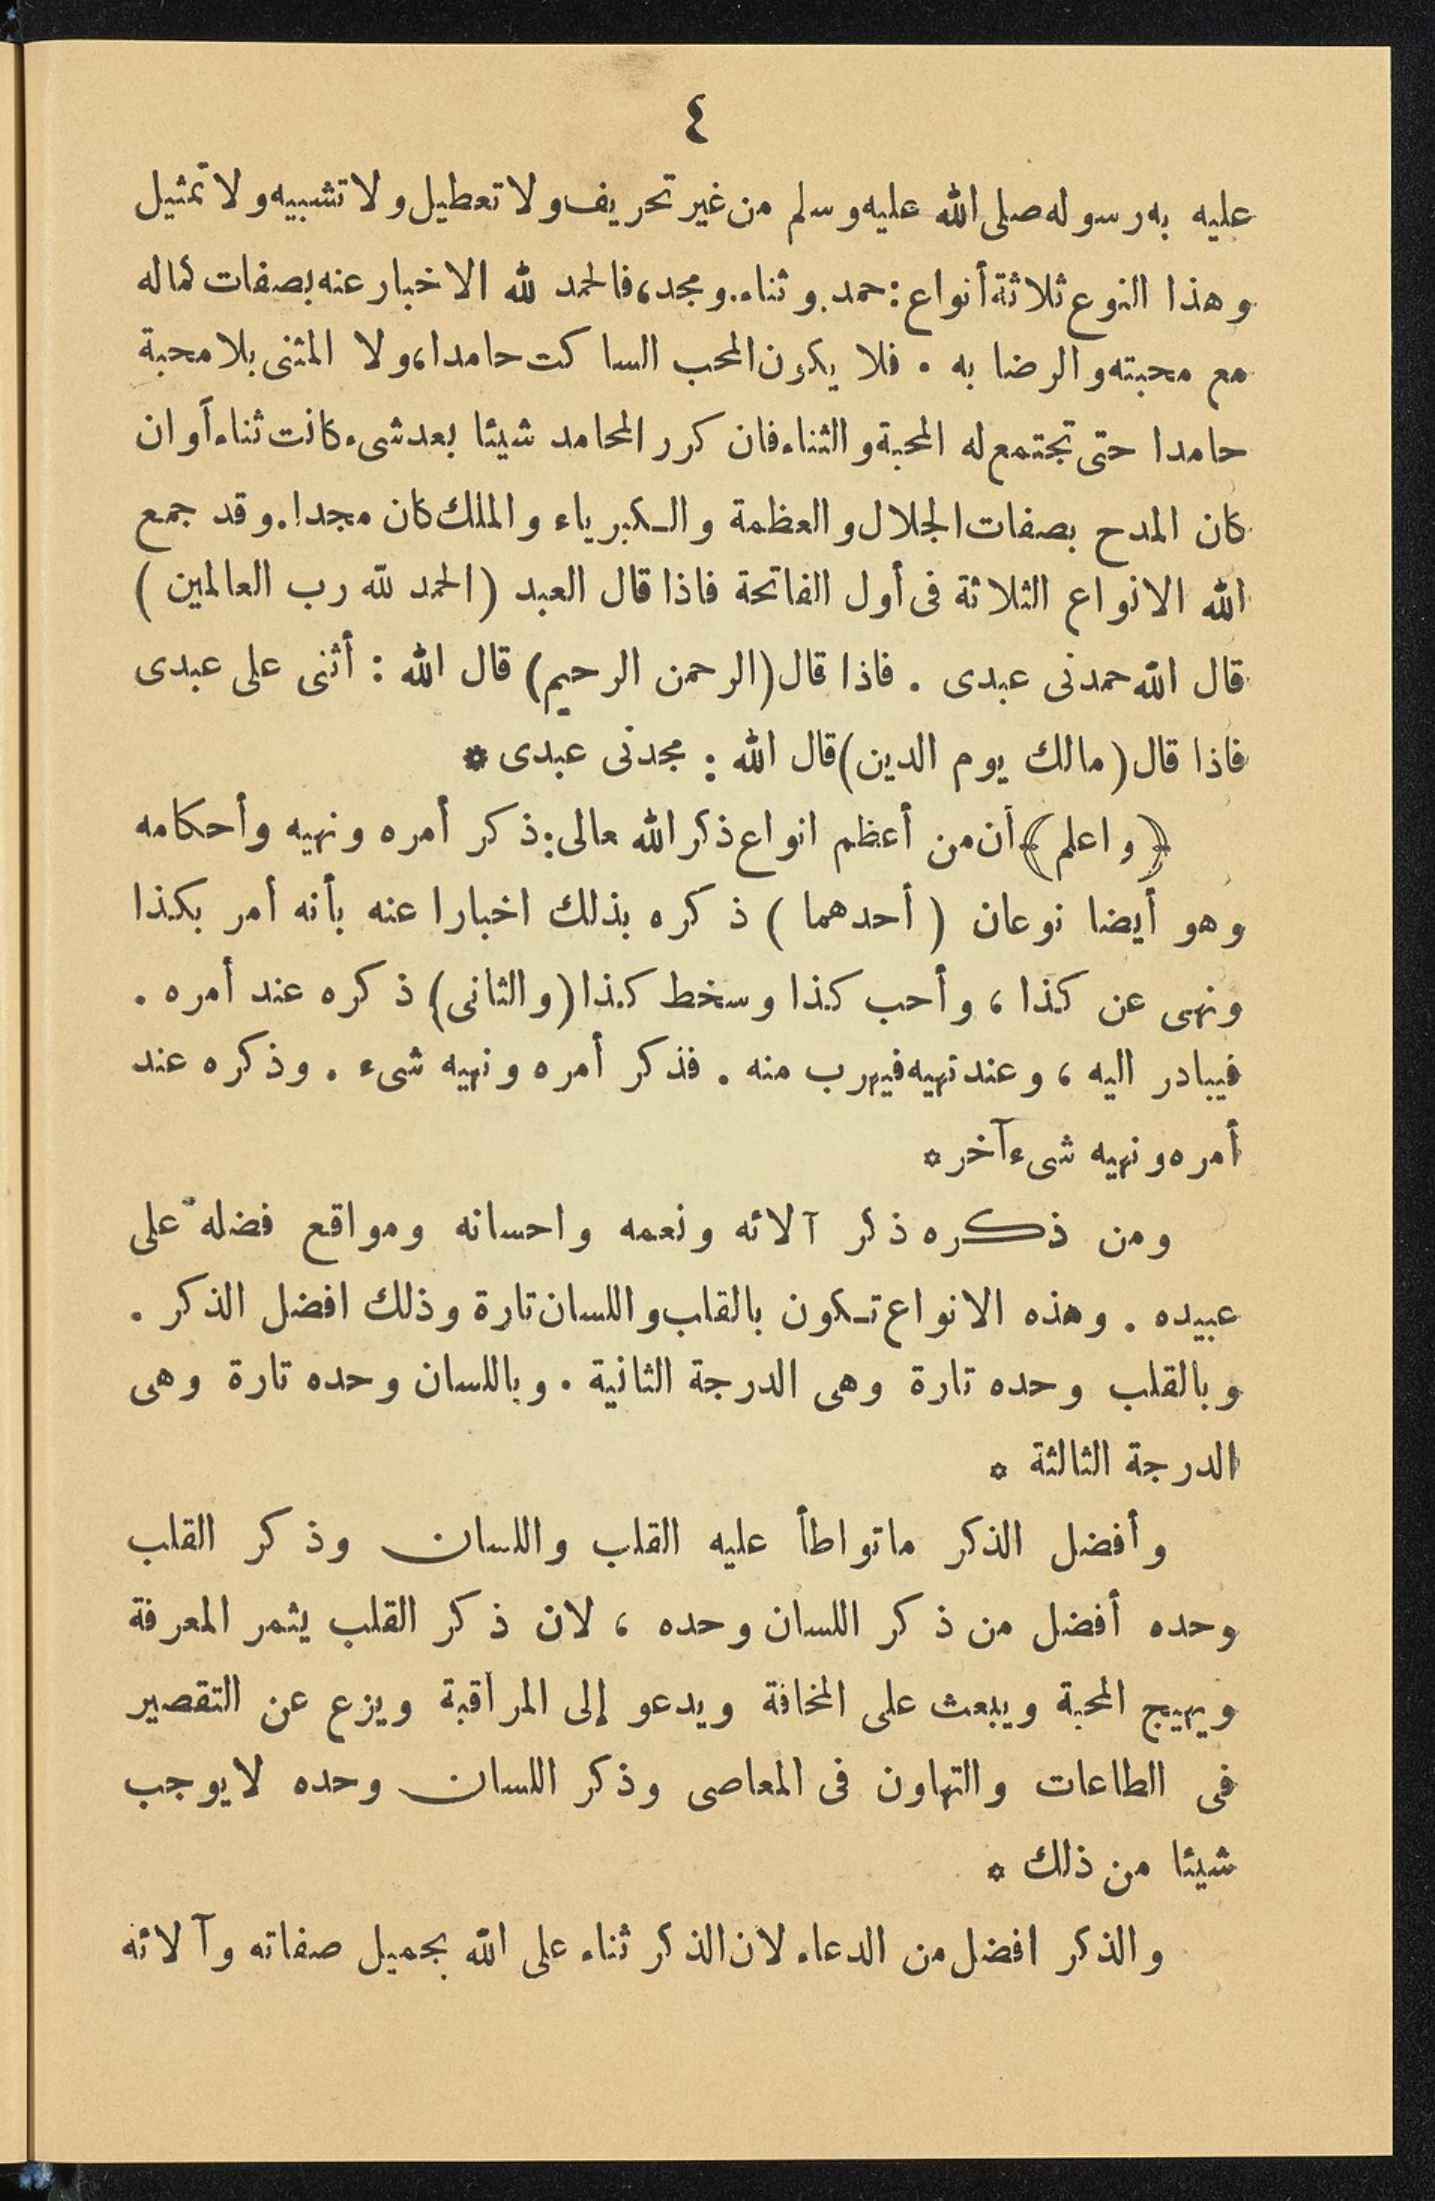 ٤
عليه به رسوله صلى الله عليه وسلم من غير تحريف ولا تعطيل ولا تشبيه ولا تمثيل
وهذا النوع ثلاثة أنواع : حمد. وثناء. ومجد، فالحمد لله الاخبار عنه بصفات كماله
مع محبته والرضا به . فلا يكون المحب الساكت حامدا، ولا المثنى بلا محبة
حامدا حتى تجتمع له المحبة والثناء فان كرر المحامد شيئا بعد شىء كانت ثناء أو ان
كان المدح بصفات الجلال والعظمة والكبرياء والملك كان مجدا. وقد جمع
الله الانواع الثلاثة فى أول الفاتحة فاذا قال العبد ( الحمد لله رب العالمين )
قال الله حمدنى عبدى . فاذا قال ( الرحمن الرحيم ) قال الله : أثنى على عبدى
فاذا قال ( مالك يوم الدين ) قال الله : مجدنى عبدى *
﴿ واعلم ﴾ أن من أعظم انواع ذكر الله عالى: ذكر أمره ونهيه وأحكامه
وهو أيضا نوعان ( أحدهما ) ذكره بذلك اخبارا عنه بأنه أمر بكذا
ونهى عن كذا ، وأحب كذا وسخط كذا ( والثانى ) ذكره عند أمره .
فيبادر اليه ، وعند نهيه فيهرب منه . فذكر أمره ونهيه شىء . وذكره عند
أمره ونهيه شىء آخر *
ومن ذكره ذكر آلائه ونعمه واحسانه ومواقع فضله على
عبيده . وهذه الانواع تكون بالقلب واللسان تارة وذلك افضل الذكر .
وبالقلب وحده تارة وهى الدرجة الثانية . وباللسان وحده تارة وهى
الدرجة الثالثة *
وأفضل الذكر ماتواطأ عليه القلب واللسان وذكر القلب
وحده أفضل من ذكر اللسان وحده ، لان ذكر القلب يثمر المعرفة
ويهيج المحبة ويبعث على المخافة ويدعو إلى المراقبة ويزع عن التقصير
فى الطاعات والتهاون فى المعاصى وذكر اللسان وحده لايوجب
شيئا من ذلك *
والذكر افضل من الدعاء لان الذكر ثناء على الله بجميل صفاته وآلائه